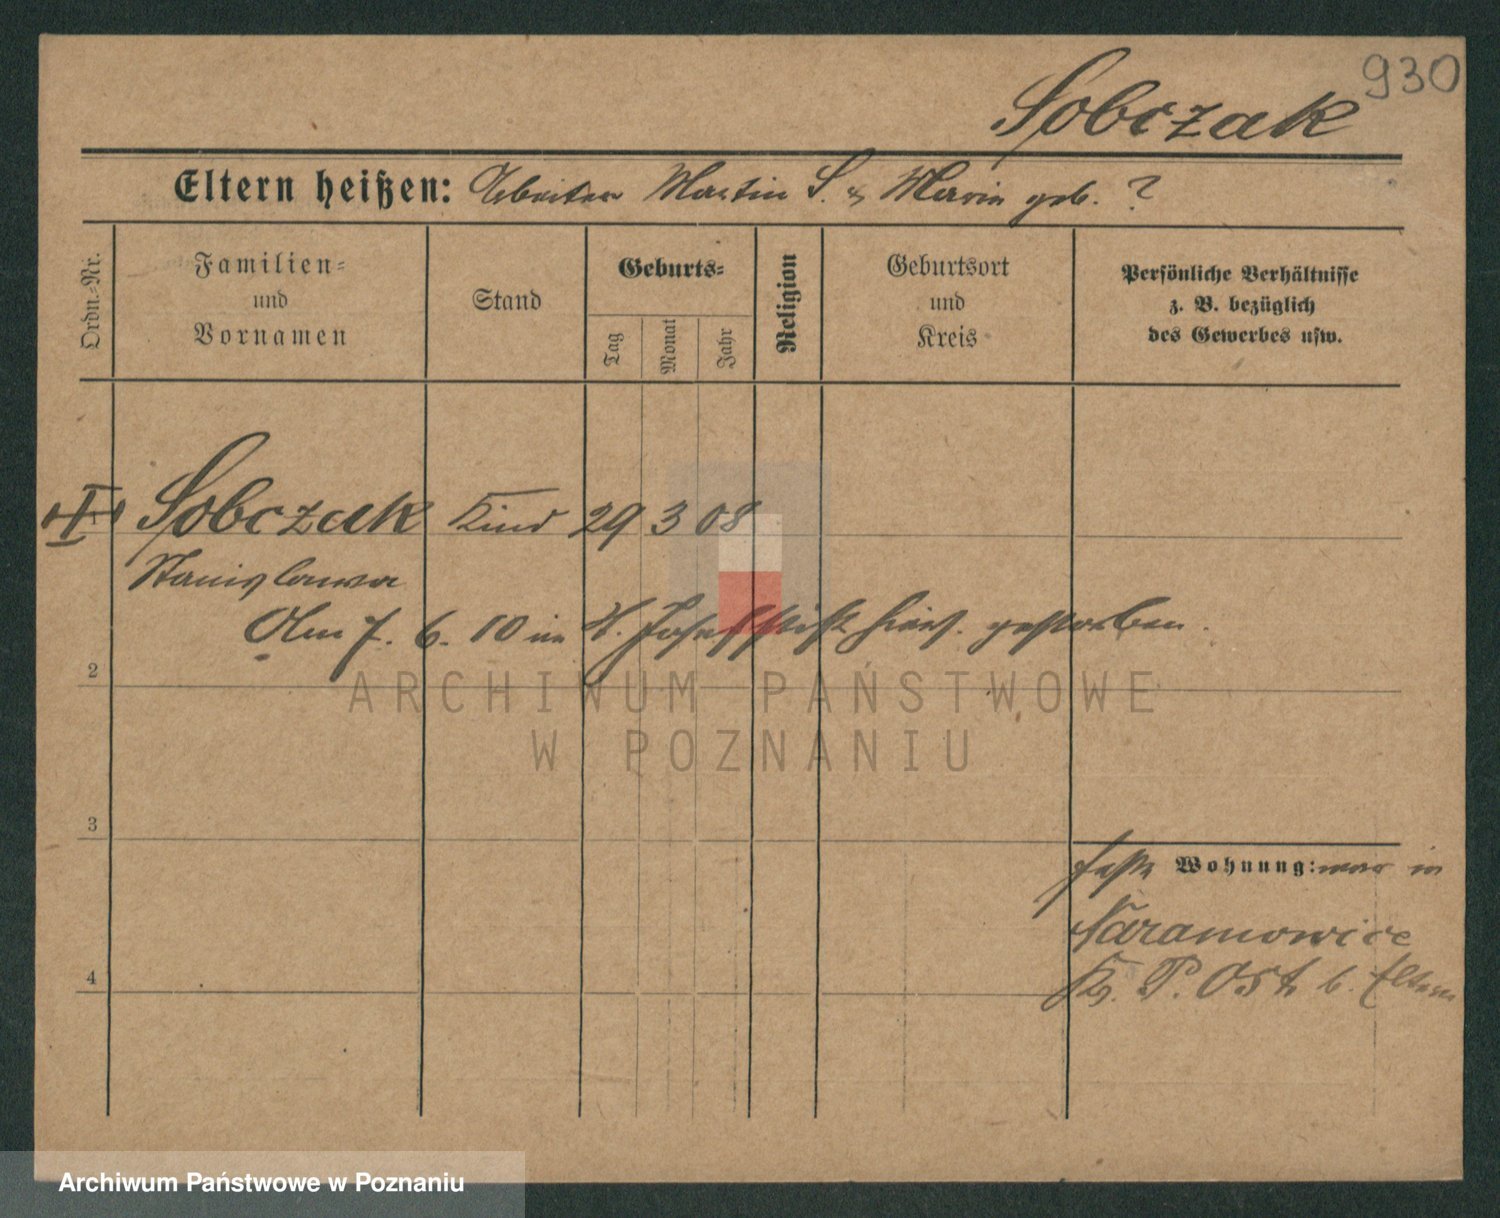 930
Sobczak
Eltern heißen: Arbeiter Martin S. & Maria geb. ?
Ordn.-Nr.
Familien-
und
Vornamen
Stand
Geburts-
Tag
Monat
Jahr
Religion
Geburtsort
und
Kreis
Persönliche Verhältnisse
z. B. bezüglich
des Gewerbes usw.
1 Sobczak Kind 29 3 08
Stanislawa
Am 7. 6. 10 im St. Josefstift hier. gestorben.
2
ARCHIWUM PAŃSTWOWE
W POZNANIU
3
feste Wohnung: war in
Naramowice
Kr. P. Ost b. Eltern
4
Archiwum Państwowe w Poznaniu